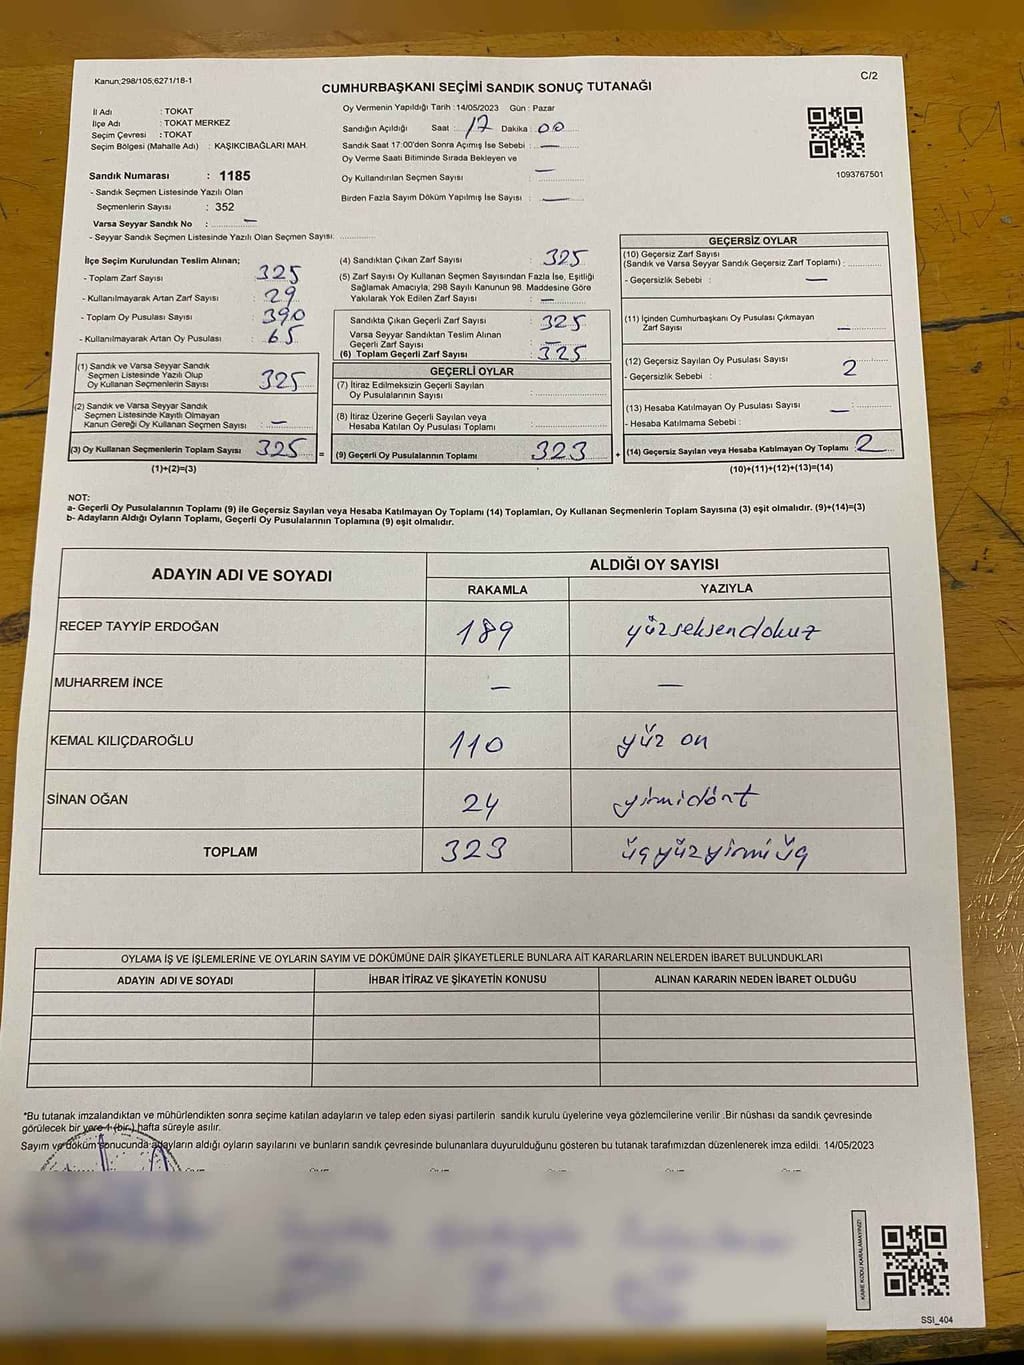 Kanun:298/105,6271/18-1
C/2
CUMHURBAŞKANI SEÇİMİ SANDIK SONUÇ TUTANAĞI
İl Adı : TOKAT
İlçe Adı : TOKAT MERKEZ
Seçim Çevresi : TOKAT
Seçim Bölgesi (Mahalle Adı) : KAŞIKCIBAĞLARI MAH.
Oy Vermenin Yapıldığı Tarih : 14/05/2023 Gün : Pazar
Sandığın Açıldığı Saat : 17 Dakika : 00
Sandık Saat 17:00'den Sonra Açımış İse Sebebi : —
Oy Verme Saati Bitiminde Sırada Bekleyen ve
Oy Kullandırılan Seçmen Sayısı : —
Birden Fazla Sayım Döküm Yapılmış İse Sayısı : —
1093767501
Sandık Numarası : 1185
- Sandık Seçmen Listesinde Yazılı Olan
Seçmenlerin Sayısı : 352
Varsa Seyyar Sandık No : —
- Seyyar Sandık Seçmen Listesinde Yazılı Olan Seçmen Sayısı:
İlçe Seçim Kurulundan Teslim Alınan;
- Toplam Zarf Sayısı : 325
- Kullanılmayarak Artan Zarf Sayısı : 29
- Toplam Oy Pusulası Sayısı : 390
- Kullanılmayarak Artan Oy Pusulası : 65
(1) Sandık ve Varsa Seyyar Sandık
Seçmen Listesinde Yazılı Olup
Oy Kullanan Seçmenlerin Sayısı : 325
(2) Sandık ve Varsa Seyyar Sandık
Seçmen Listesinde Kayıtlı Olmayan
Kanun Gereği Oy Kullanan Seçmen Sayısı : —
(3) Oy Kullanan Seçmenlerin Toplam Sayısı : 325 =
(1)+(2)=(3)
(4) Sandıktan Çıkan Zarf Sayısı : 325
(5) Zarf Sayısı Oy Kullanan Seçmen Sayısından Fazla İse, Eşitliği
Sağlamak Amacıyla, 298 Sayılı Kanunun 98. Maddesine Göre
Yakılarak Yok Edilen Zarf Sayısı : —
Sandıkta Çıkan Geçerli Zarf Sayısı : 325
Varsa Seyyar Sandıktan Teslim Alınan
Geçerli Zarf Sayısı : —
(6) Toplam Geçerli Zarf Sayısı : 325
GEÇERLİ OYLAR
(7) İtiraz Edilmeksizin Geçerli Sayılan
Oy Pusulalarının Sayısı :
(8) İtiraz Üzerine Geçerli Sayılan veya
Hesaba Katılan Oy Pusulası Toplamı :
(9) Geçerli Oy Pusulalarının Toplamı : 323 +
GEÇERSİZ OYLAR
(10) Geçersiz Zarf Sayısı
(Sandık ve Varsa Seyyar Sandık Geçersiz Zarf Toplamı) :
- Geçersizlik Sebebi : —
(11) İçinden Cumhurbaşkanı Oy Pusulası Çıkmayan
Zarf Sayısı : —
(12) Geçersiz Sayılan Oy Pusulası Sayısı : 2
- Geçersizlik Sebebi :
(13) Hesaba Katılmayan Oy Pusulası Sayısı : —
- Hesaba Katılmama Sebebi :
(14) Geçersiz Sayılan veya Hesaba Katılmayan Oy Toplamı : 2
(10)+(11)+(12)+(13)=(14)
NOT:
a- Geçerli Oy Pusulalarının Toplamı (9) ile Geçersiz Sayılan veya Hesaba Katılmayan Oy Toplamı (14) Toplamları, Oy Kullanan Seçmenlerin Toplam Sayısına (3) eşit olmalıdır. (9)+(14)=(3)
b- Adayların Aldığı Oyların Toplamı, Geçerli Oy Pusulalarının Toplamına (9) eşit olmalıdır.
ADAYIN ADI VE SOYADI
ALDIĞI OY SAYISI
RAKAMLA YAZIYLA
RECEP TAYYİP ERDOĞAN 189 yüzseksendokuz
MUHARREM İNCE — —
KEMAL KILIÇDAROĞLU 110 yüz on
SİNAN OĞAN 24 yirmidört
TOPLAM 323 üçyüzyirmiüç
OYLAMA İŞ VE İŞLEMLERİNE VE OYLARIN SAYIM VE DÖKÜMÜNE DAİR ŞİKAYETLERLE BUNLARA AİT KARARLARIN NELERDEN İBARET BULUNDUKLARI
ADAYIN ADI VE SOYADI İHBAR İTİRAZ VE ŞİKAYETİN KONUSU ALINAN KARARIN NEDEN İBARET OLDUĞU
*Bu tutanak imzalandıktan ve mühürlendikten sonra seçime katılan adayların ve talep eden siyasi partilerin sandık kurulu üyelerine veya gözlemcilerine verilir .Bir nüshası da sandık çevresinde
görülecek bir yere 1 (bir) hafta süreyle asılır.
Sayım ve döküm sonucunda adayların aldığı oyların sayılarını ve bunların sandık çevresinde bulunanlara duyurulduğunu gösteren bu tutanak tarafımızdan düzenlenerek imza edildi. 14/05/2023
KARE KODU KARALAMAYINIZ!
SSI_404